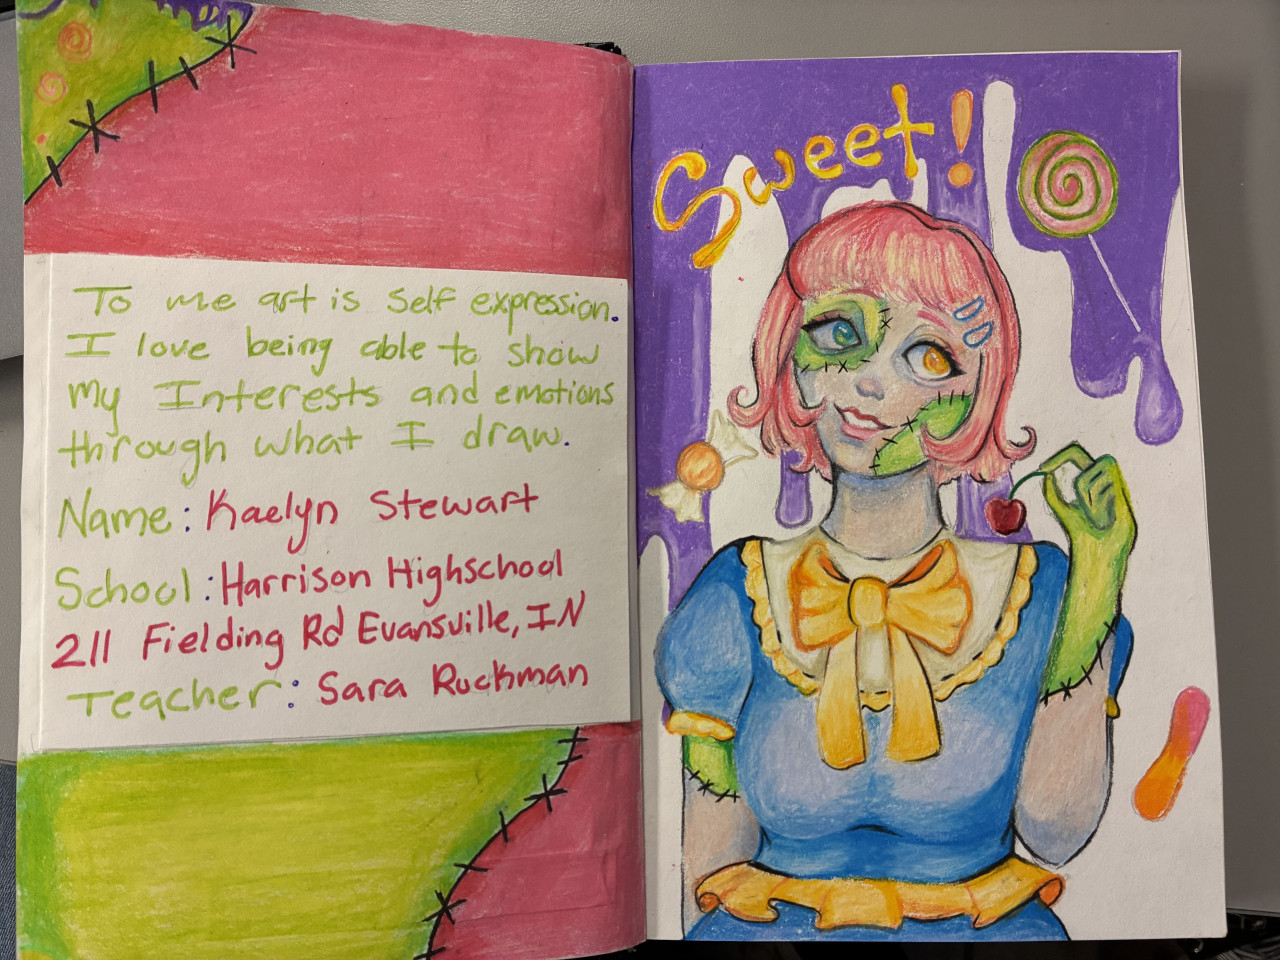 To me art is self expression.
I love being able to show
my Interests and emotions
through what I draw.
Name: Kaelyn Stewart
School: Harrison Highschool
211 Fielding Rd Evansville, IN
Teacher: Sara Ruckman
Sweet!